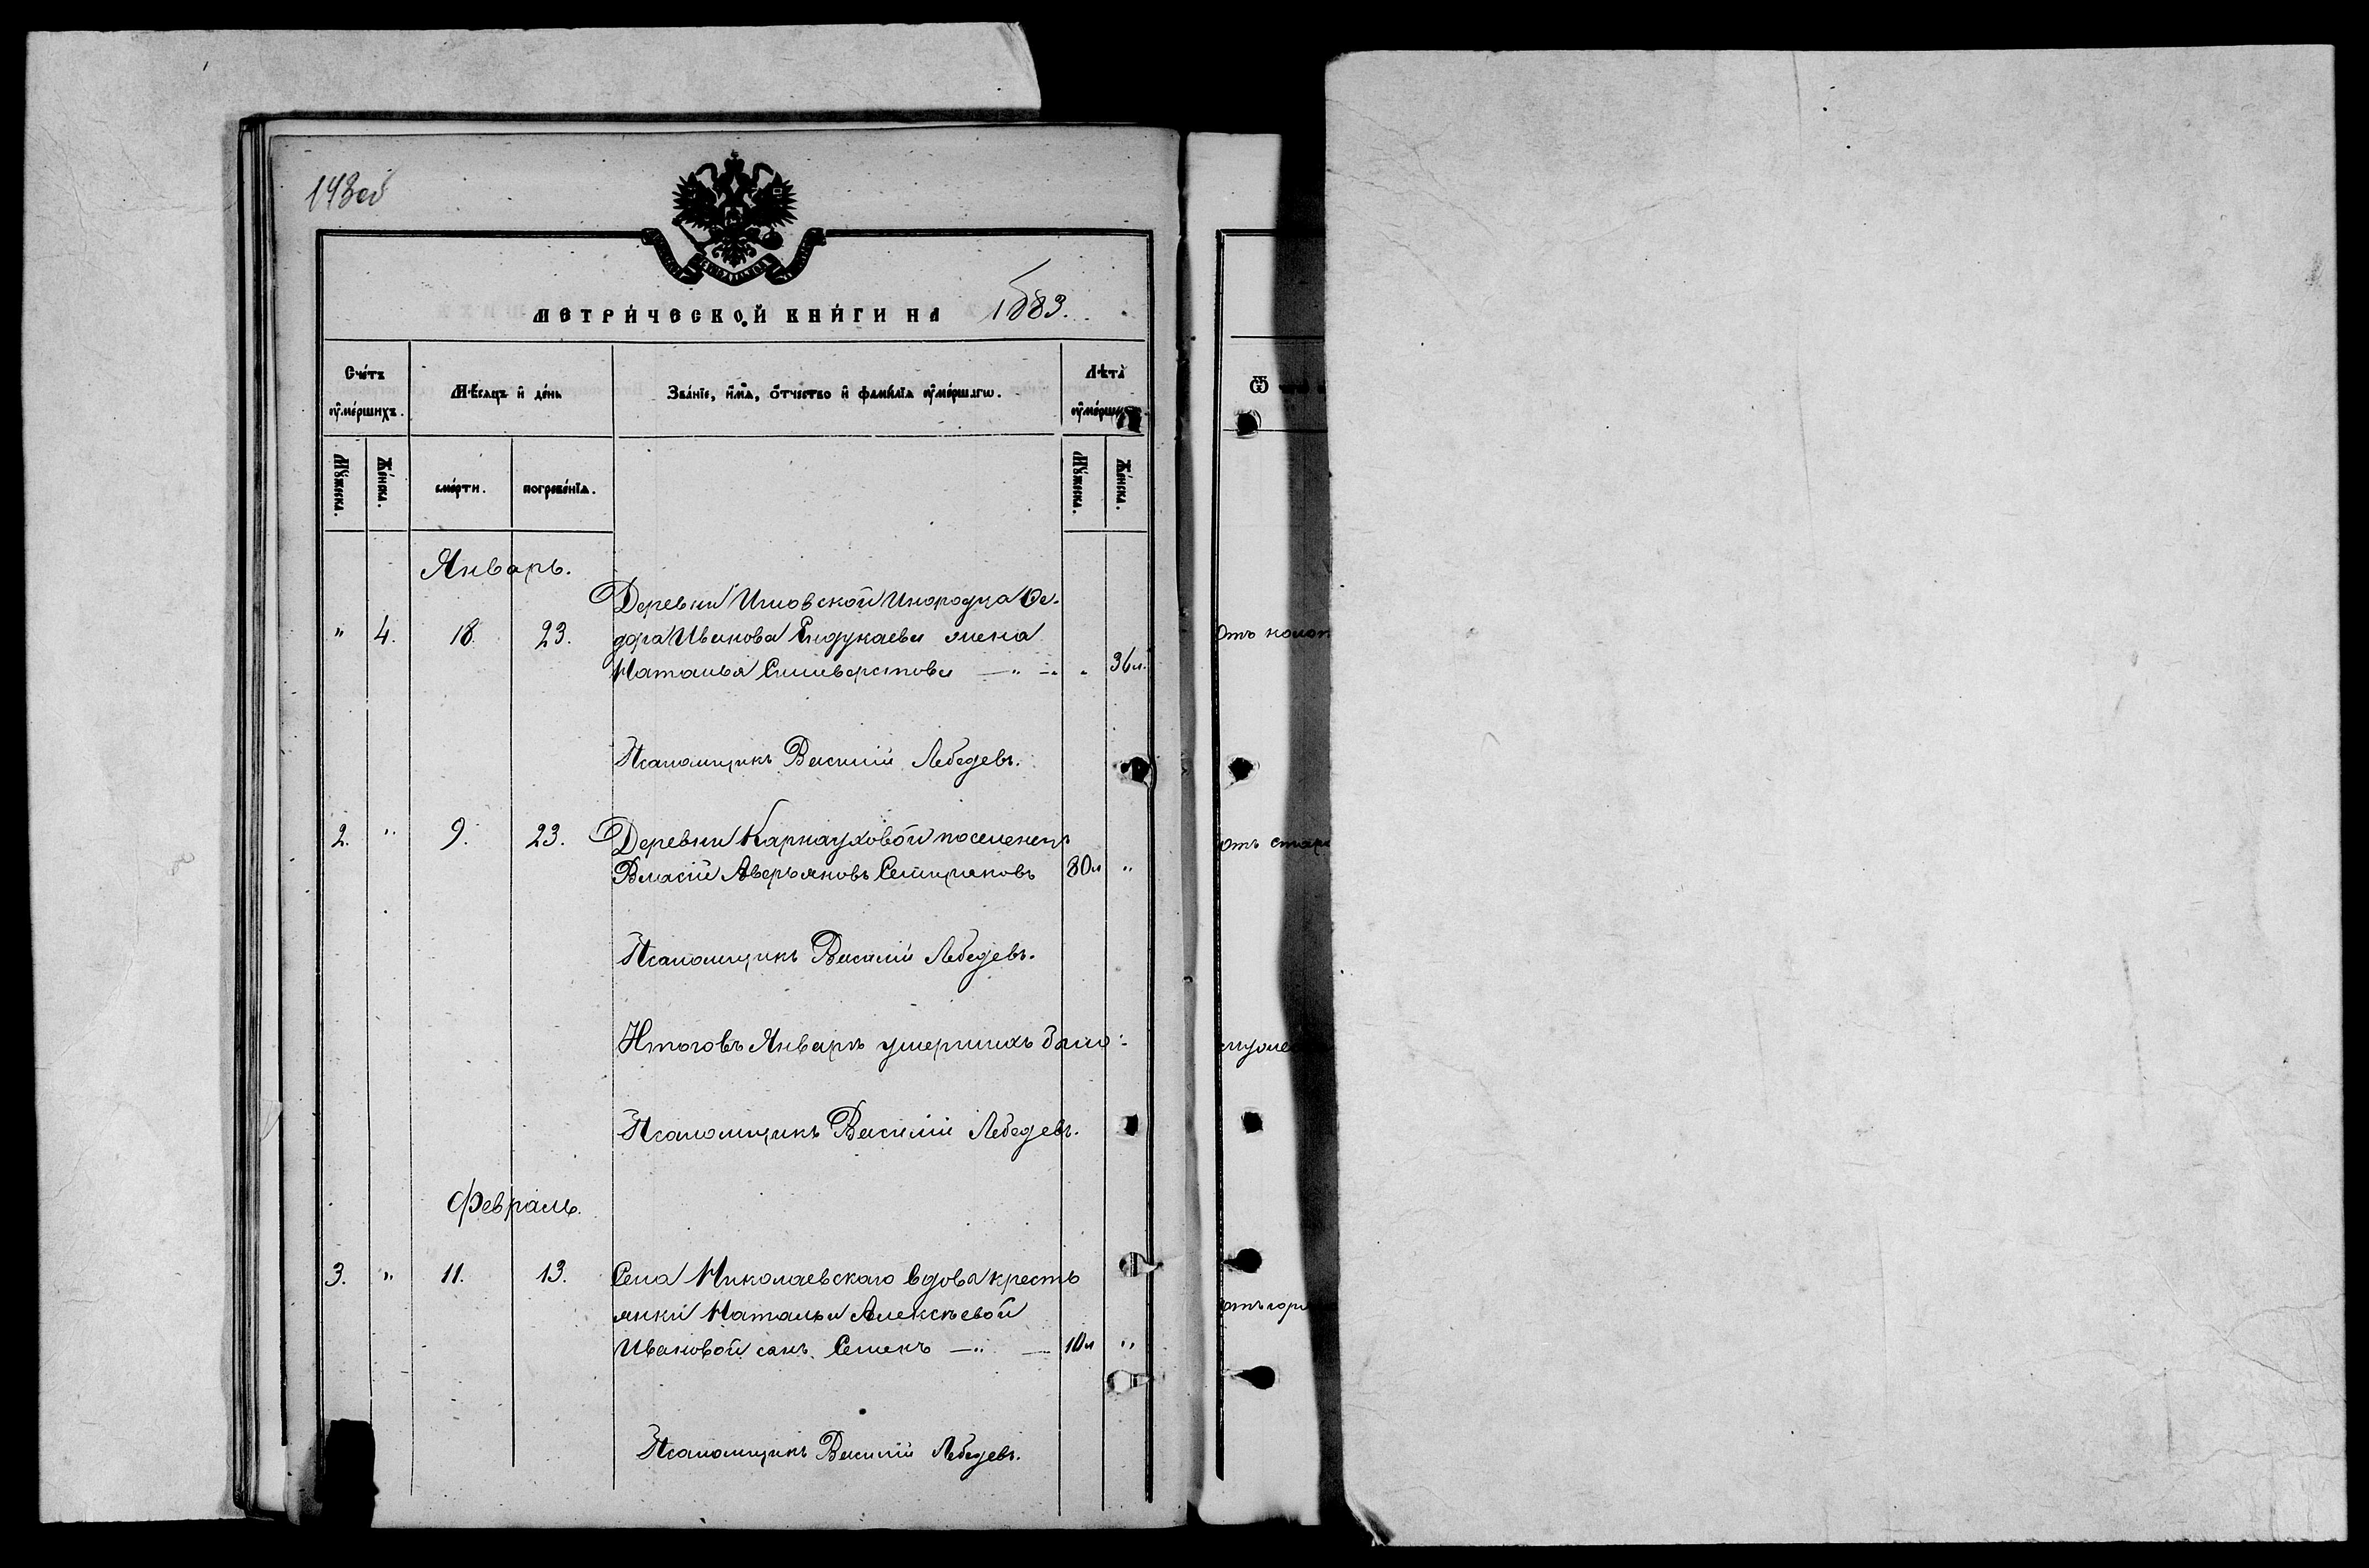 143об
МЕТРИ́ЧЕСКОЙ КНИ́ГИ НА 1883.
Сче́тъ ᲂу҆ме́ршихъ.
Мѣ́сяцъ и҆ де́нь
Зва́нїе, и҆́мѧ, ѻ҆́тчество и҆ фами́лїѧ ᲂу҆ме́ршагѡ.
Лѣта̀ ᲂу҆ме́рш
Мꙋ́жеска. Же́нска. сме́рти. погребе́нїѧ. Мꙋ́жеска. Же́нска.
Ѿ
Январь.
Деревни Инородца Ѳе-
" 4. 18. 23. дора Иванова жена
Наталья Сильверстова — " — " 36 л.
Отъ
Псаломщикъ Василій Лебедевъ.
2. " 9. 23. Деревни Карнауховой поселенецъ
отъ
Власій Аверьяновъ 80 л "
Псаломщикъ Василій Лебедевъ.
Итого въ Январѣ умершихъ было:
Псаломщикъ Василій Лебедевъ.
Февраль.
3. " 11. 13. Села Николаевскаго вдовы кресть
янки Натальи Алексѣевой
Ивановой сынъ Семенъ — " — 10 л "
отъ
Псаломщикъ Василій Лебедевъ.